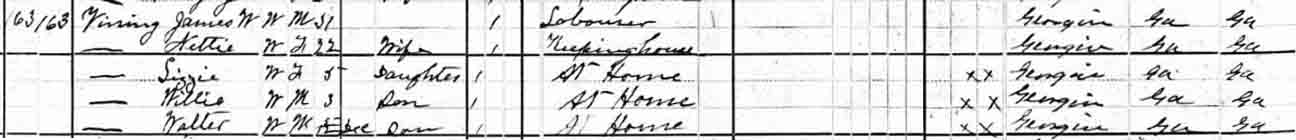 163 163 Vining James W W M 31 1 Labourer Georgia Ga Ga
— Nettie W F 22 Wife 1 Keeping house Georgia Ga Ga
— Lizzie W F 5 Daughter 1 At Home x x Georgia Ga Ga
— Willie W M 3 Son 1 At Home x x Georgia Ga Ga
— Walter W M Dec Son 1 At Home x x Georgia Ga Ga